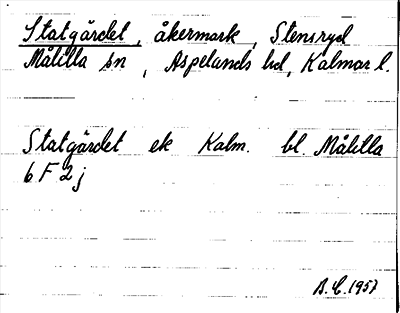 Statgärdet, åkermark, Stensryd
Målilla sn, Aspelands hd, Kalmar l.
Statgärdet ek Kalm. bl. Målilla
6 F 2 j
B.E. 1957